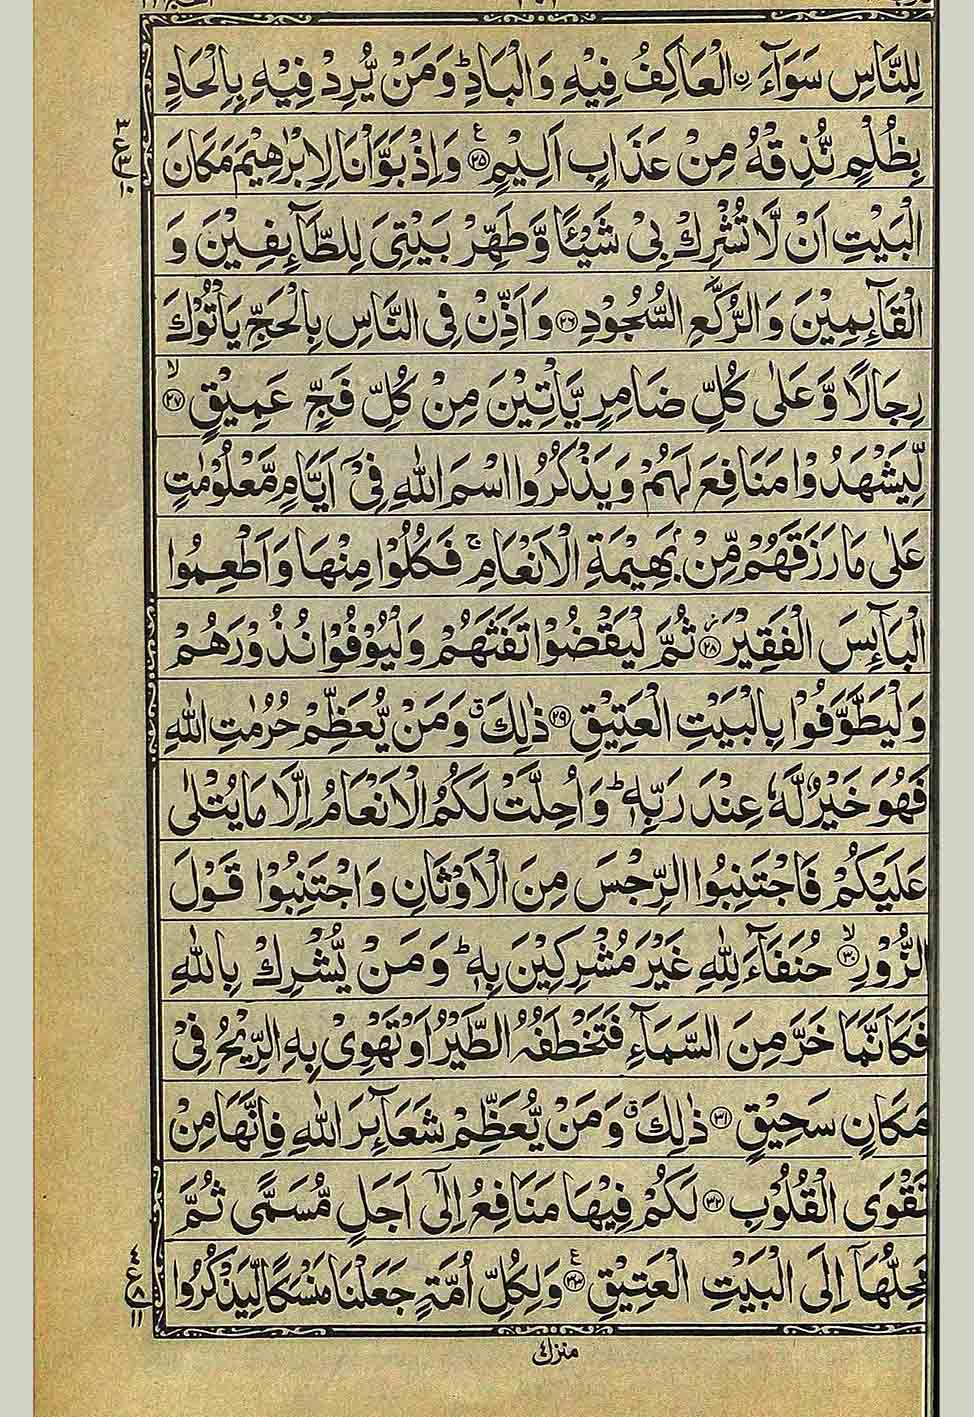 لِلنَّاسِ سَوَآءَ ِۨالْعَاكِفُ فِيْهِ وَالْبَادِؕ وَمَنْ يُّرِدْ فِيْهِ بِاِلْحَادٍۭ
بِظُلْمٍ نُّذِقْهُ مِنْ عَذَابٍ اَلِيْمٍ ﴿۲۵﴾ۧ وَاِذْ بَوَّاْنَا لِاِبْرٰهِيْمَ مَكَانَ
الْبَيْتِ اَنْ لَّا تُشْرِكْ بِيْ شَيْـًٔا وَّطَهِّرْ بَيْتِيَ لِلطَّآىِٕفِيْنَ وَ
الْقَآىِٕمِيْنَ وَالرُّكَّعِ السُّجُوْدِ ﴿۲۶﴾ وَاَذِّنْ فِى النَّاسِ بِالْحَجِّ يَاْتُوْكَ
رِجَالًا وَّعَلٰى كُلِّ ضَامِرٍ يَّاْتِيْنَ مِنْ كُلِّ فَجٍّ عَمِيْقٍ ﴿۲۷﴾ۙ
لِّيَشْهَدُوْا مَنَافِعَ لَهُمْ وَيَذْكُرُوا اسْمَ اللّٰهِ فِيْۤ اَيَّامٍ مَّعْلُوْمٰتٍ
عَلٰى مَا رَزَقَهُمْ مِّنْۢ بَهِيْمَةِ الْاَنْعَامِۚ فَكُلُوْا مِنْهَا وَاَطْعِمُوا
الْبَآىِٕسَ الْفَقِيْرَ ﴿۲۸﴾ؗ ثُمَّ لْيَقْضُوْا تَفَثَهُمْ وَلْيُوْفُوْا نُذُوْرَهُمْ
وَلْيَطَّوَّفُوْا بِالْبَيْتِ الْعَتِيْقِ ﴿۲۹﴾ ذٰلِكَۗ وَمَنْ يُّعَظِّمْ حُرُمٰتِ اللّٰهِ
فَهُوَ خَيْرٌ لَّهٗ عِنْدَ رَبِّهٖؕ وَاُحِلَّتْ لَكُمُ الْاَنْعَامُ اِلَّا مَا يُتْلٰى
عَلَيْكُمْ فَاجْتَنِبُوا الرِّجْسَ مِنَ الْاَوْثَانِ وَاجْتَنِبُوْا قَوْلَ
الزُّوْرِ ﴿۳۰﴾ۙ حُنَفَآءَ لِلّٰهِ غَيْرَ مُشْرِكِيْنَ بِهٖؕ وَمَنْ يُّشْرِكْ بِاللّٰهِ
فَكَاَنَّمَا خَرَّ مِنَ السَّمَآءِ فَتَخْطَفُهُ الطَّيْرُ اَوْ تَهْوِيْ بِهِ الرِّيْحُ فِيْ
مَكَانٍ سَحِيْقٍ ﴿۳۱﴾ ذٰلِكَۗ وَمَنْ يُّعَظِّمْ شَعَآىِٕرَ اللّٰهِ فَاِنَّهَا مِنْ
تَقْوَى الْقُلُوْبِ ﴿۳۲﴾ لَكُمْ فِيْهَا مَنَافِعُ اِلٰۤى اَجَلٍ مُّسَمًّى ثُمَّ
مَحِلُّهَاۤ اِلَى الْبَيْتِ الْعَتِيْقِ ﴿۳۳﴾ۧ وَلِكُلِّ اُمَّةٍ جَعَلْنَا مَنْسَكًا لِّيَذْكُرُوا
منزل ٤